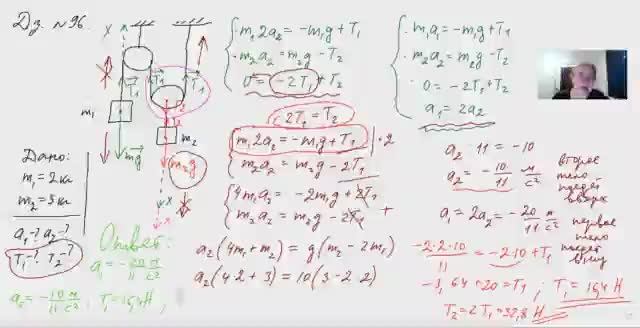 Дз. №96.
x
x
T₁
T₁
T₂
m₁
m₂
mg
m₂g
x
x
Дано:
m₁ = 2 кг
m₂ = 3 кг
a₁-? a₂-?
T₁-? T₂-?
Ответ:
a₁ = -20/11 м/с²
a₂ = -10/11 м/с² ; T₁ = 16,4 Н ;
m₁2a₂ = -m₁g + T₁
m₂a₂ = m₂g - T₂
0 = -2T₁ + T₂
2T₁ = T₂
m₁2a₂ = -m₁g + T₁ | · 2
m₂a₂ = m₂g - 2T₁
4m₁a₂ = -2m₁g + 2T₁
m₂a₂ = m₂g - 2T₁ +
a₂(4m₁ + m₂) = g(m₂ - 2m₁)
a₂(4·2 + 3) = 10(3 - 2·2)
m₁a₁ = -m₁g + T₁
m₂a₂ = m₂g - T₂
0 = -2T₁ + T₂
a₁ = 2a₂
a₂ · 11 = -10
a₂ = -10/11 м/с²
второе
тело
поедет
вверх
a₁ = 2a₂ = -20/11 м/с²
первое
тело
поедет
вниз
-2·2·10/11 = -2·10 + T₁
-3,64 + 20 = T₁ ; T₁ = 16,4 Н
T₂ = 2T₁ = 32,8 Н